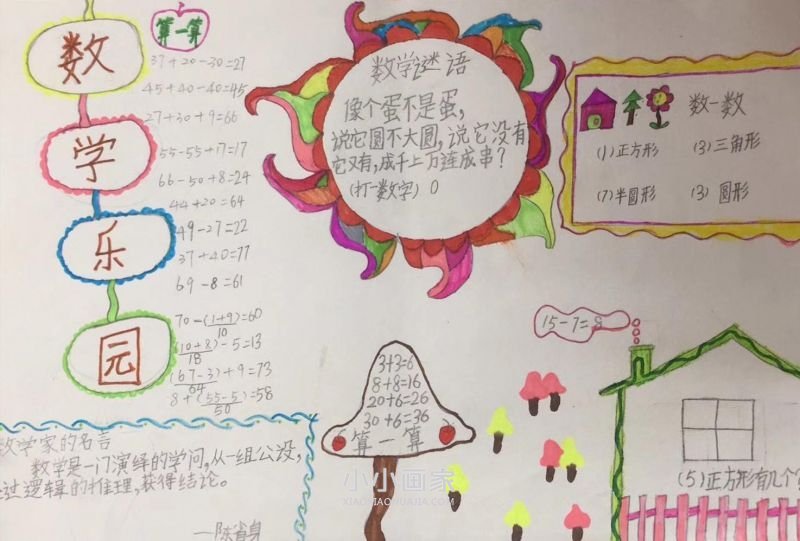 数
学
乐
园
算一算
37+20-30=27
45+40-40=45
27+30+9=66
55-55+17=17
66-50+8=24
44+20=64
49-27=22
37+40=77
69-8=61
70-(1+9)=60
10
(10+8)-5=13
18
(67-3)+9=73
64
8+(55-5)=58
50
数学谜语
像个蛋不是蛋,
说它圆不大圆,说它没有
它又有,成千上万连成串?
(打一数字) 0
数一数
(1)正方形 (3)三角形
(7)半圆形 (3)圆形
15-7=8
3+3=6
8+8=16
20+6=26
30+6=36
算一算
数学家的名言
数学是一门演绎的学问,从一组公设,
过逻辑的推理,获得结论。
—陈省身
(5)正方形有几个
小小画家
XIAOXIAOHUAJIA.COM